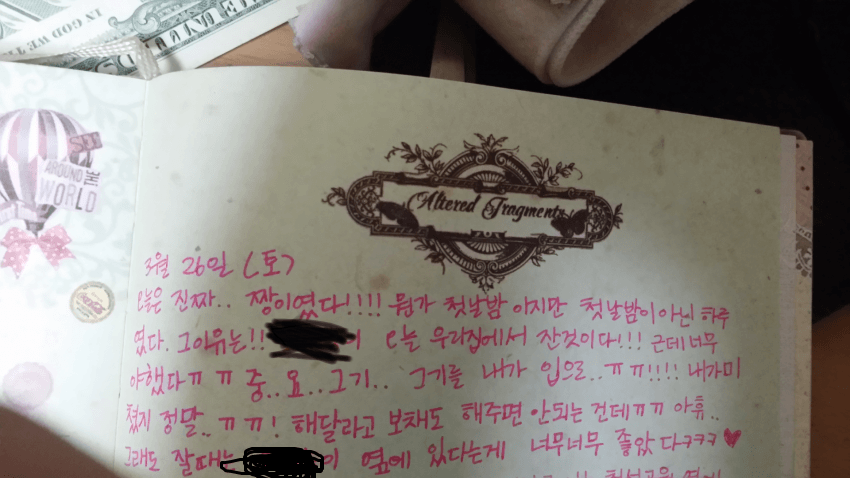 IN GOD WE
AROUND THE
WORLD
Altered Fragments
3월 26일 (토)
오늘은 진짜.. 짱이였다!!!! 뭔가 첫날밤 이지만 첫날밤이 아닌 하루
였다. 그이유는!! 이 오늘 우리집에서 잔것이다!!! 근데 너무
야했다ㅠㅠ 중..요..그기.. 그기를 내가 입으로..ㅠㅠ!!!! 내가미
쳤지 정말..ㅠㅠ! 해달라고 보채도 해주면 안되는 건데ㅠㅠ 아휴..
그래도 잘때는 이 옆에 있다는게 너무너무 좋았다ㅋㅋㅋ♥